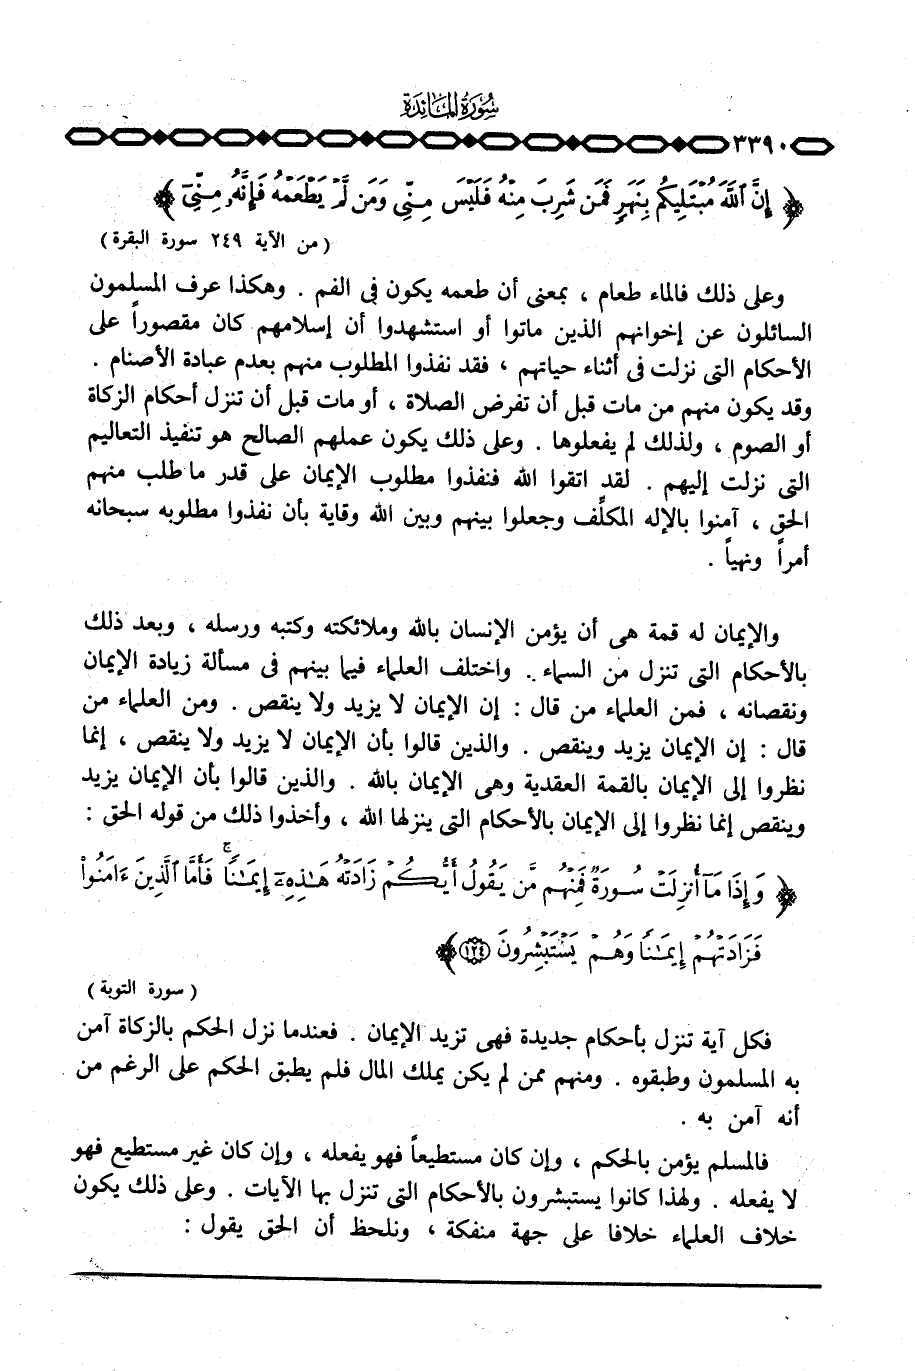 سُورَةُ المَائِدَة
٣٣٩٠
﴿ إِنَّ ٱللَّهَ مُبْتَلِيكُم بِنَهَرٍ فَمَن شَرِبَ مِنْهُ فَلَيْسَ مِنِّي وَمَن لَّمْ يَطْعَمْهُ فَإِنَّهُۥ مِنِّيٓ ﴾
( من الآية ٢٤٩ سورة البقرة )
وعلى ذلك فالماء طعام ، بمعنى أن طعمه يكون فى الفم . وهكذا عرف المسلمون
السائلون عن إخوانهم الذين ماتوا أو استشهدوا أن إسلامهم كان مقصوراً على
الأحكام التى نزلت فى أثناء حياتهم ، فقد نفذوا المطلوب منهم بعدم عبادة الأصنام .
وقد يكون منهم من مات قبل أن تفرض الصلاة ، أو مات قبل أن تنزل أحكام الزكاة
أو الصوم ، ولذلك لم يفعلوها . وعلى ذلك يكون عملهم الصالح هو تنفيذ التعاليم
التى نزلت إليهم . لقد اتقوا الله فنفذوا مطلوب الإيمان على قدر ما طلب منهم
الحق ، آمنوا بالإله المكلِّف وجعلوا بينهم وبين الله وقاية بأن نفذوا مطلوبه سبحانه
أمراً ونهياً .
والإيمان له قمة هى أن يؤمن الإنسان بالله وملائكته وكتبه ورسله ، وبعد ذلك
بالأحكام التى تنزل من السماء .. واختلف العلماء فيما بينهم فى مسألة زيادة الإيمان
ونقصانه ، فمن العلماء من قال : إن الإيمان لا يزيد ولا ينقص . ومن العلماء من
قال : إن الإيمان يزيد وينقص . والذين قالوا بأن الإيمان لا يزيد ولا ينقص ، إنما
نظروا إلى الإيمان بالقمة العقدية وهى الإيمان بالله . والذين قالوا بأن الإيمان يزيد
وينقص إنما نظروا إلى الإيمان بالأحكام التى ينزلها الله ، وأخذوا ذلك من قوله الحق :
﴿ وَإِذَا مَآ أُنزِلَتْ سُورَةٌ فَمِنْهُم مَّن يَقُولُ أَيُّكُمْ زَادَتْهُ هَـٰذِهِۦٓ إِيمَـٰنًا ۚ فَأَمَّا ٱلَّذِينَ ءَامَنُوا۟
فَزَادَتْهُمْ إِيمَـٰنًا وَهُمْ يَسْتَبْشِرُونَ ١٢٤ ﴾
( سورة التوبة )
فكل آية تنزل بأحكام جديدة فهى تزيد الإيمان . فعندما نزل الحكم بالزكاة آمن
به المسلمون وطبقوه . ومنهم ممن لم يكن يملك المال فلم يطبق الحكم على الرغم من
أنه آمن به .
فالمسلم يؤمن بالحكم ، وإن كان مستطيعاً فهو يفعله ، وإن كان غير مستطيع فهو
لا يفعله . ولهذا كانوا يستبشرون بالأحكام التى تنزل بها الآيات . وعلى ذلك يكون
خلاف العلماء خلافا على جهة منفكة ، ونلحظ أن الحق يقول :